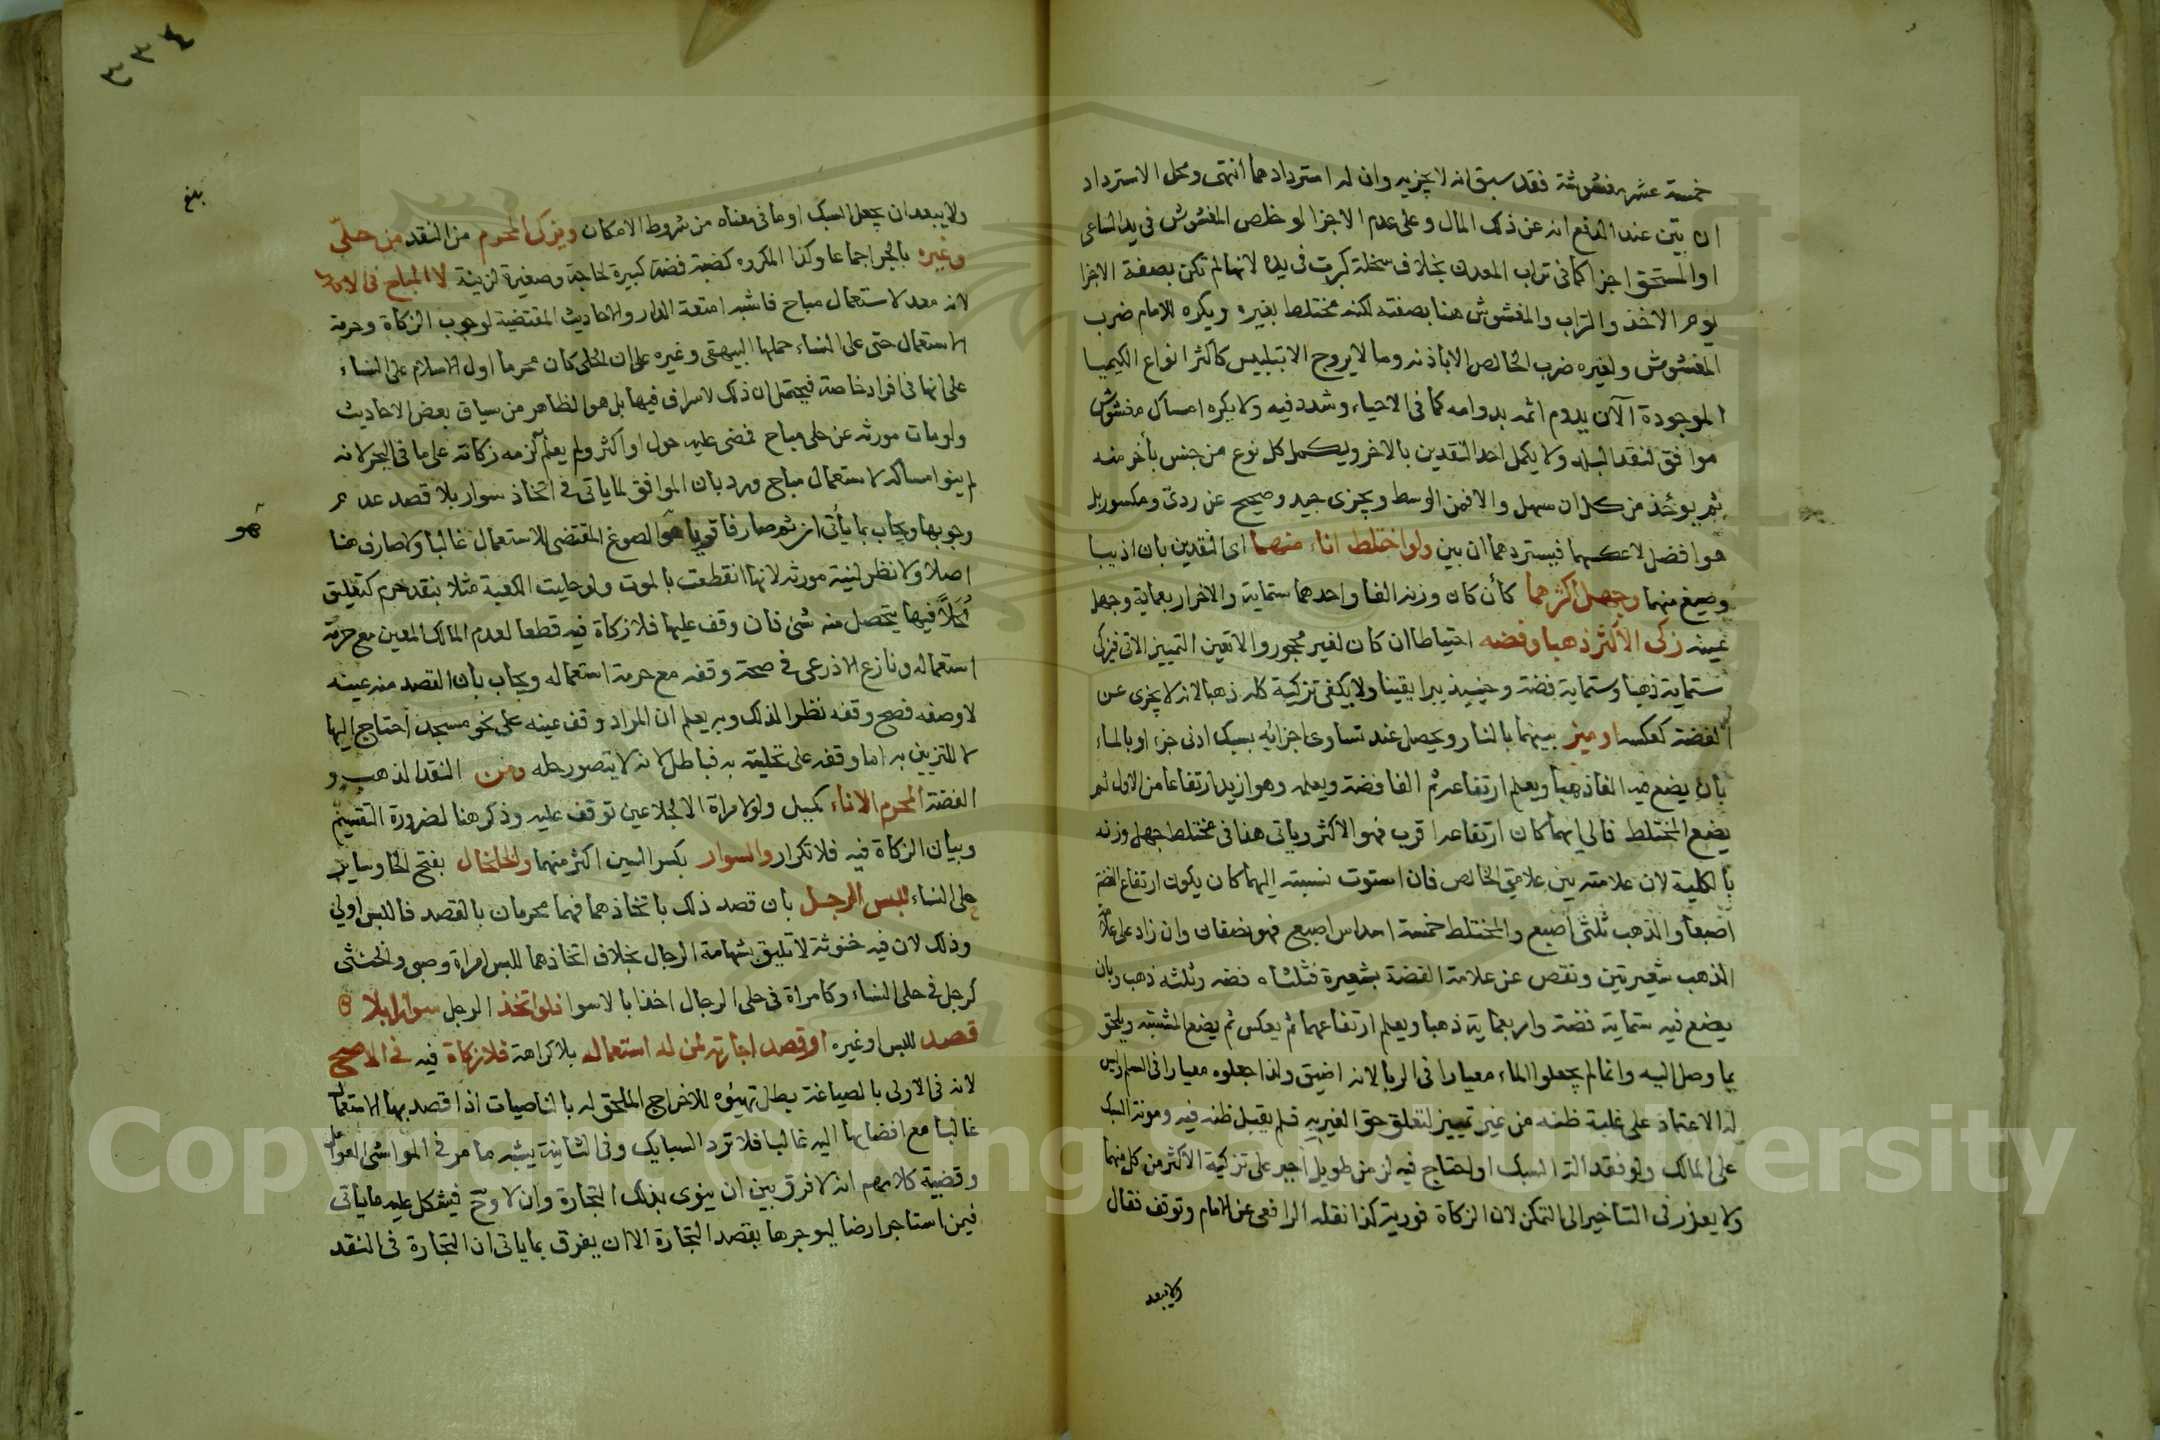 خمسة عشر مغشوشة فقد سبق انه لا يجزيه وان له استردادهما انتهى ومحل الاسترداد
ان بين عند الدفع انه عن ذلك المال وعلى عدم الاجزا لو خلص المغشوش في يد الساعى
او المستحق اجزا كما في تراب المعدن بخلاف سخلة كبرت في يده لانها لم تكن بصفة الاجزا
يوم الاخذ والتراب والمغشوش هنا بصفته لكنه مختلط بغيره ويكره للامام ضرب
المغشوش ولغيره ضرب الخالص الا باذنه وما لا يروج الا بتلبيس كاكثر انواع الكيميا
الموجودة الآن يدوم اثمه بدوامه كما في الاحياء وشدد فيه ولا يكره امساك مغشوش
موافق لنقد البلد ولا يكمل احد النقدين بالاخر ويكمل كل نوع من جنس بأخر منه
ثم يوخذ من كل ان سهل والا فمن الوسط ويجزى جيد وصحيح عن ردئ ومكسور بل
هو افضل لا عكسهما فيستردهما ان بين ولو اختلط اناء منهما اى النقدين بان اذيبا
وصيغ منهما وجهل اكثرهما كأن كان وزنه الفا واحدهما ستماية والاخر اربعماية وجهل
عينه زكى الاكثر ذهبا وفضه احتياطا ان كان لغير محجور والا تعين التمييز الاتى فيزكى
ستماية ذهبا وستماية فضة وحينيذ يبرا يقينا ولا يكفى تزكية كله ذهبا لانه لا يجزى عن
الفضة كعكسه او ميز بينهما بالنار ويحصل عند تساوى اجزائه بسبك ادنى جزء او بالماء
بان يضع فيه الفا ذهبا ويعلم ارتفاعه ثم الفا فضة ويعلمه وهو ازيد ارتفاعا من الاول ثم
يضع المختلط فالى ايهما كان ارتفاعه اقرب فهو الاكثر وياتى هنا في مختلط جهل وزنه
بالكلية لان علامته بين علامتى الخالص فان استوت نسبته اليهما كان يكون ارتفاع الفضة
اصبعا والذهب ثلثى اصبع والمختلط خمسة اسداس اصبع فهو نصفان وان زاد على علامة
الذهب شعيرتين ونقص عن علامة الفضة بشعيرة فثلثاه فضه وثلثه ذهب وبان
يضع فيه ستماية فضة واربعماية ذهبا ويعلم ارتفاعهما ثم يعكس ثم يضع المشتبه ويلحق
بما وصل اليه وانما لم يجعلوا الماء معيارا في الربا لانه اضيق ولذا جعلوه معيارا في السلم وليس
له الاعتماد على غلبة ظنه من غير تمييز لتعلق حق الغير به فلم يقبل ظنه فيه ومونة السبك
على المالك ولو فقد الة السبك او احتاج فيه لزمن طويل اجبر على تزكية الاكثر من كل منهما
ولا يعذر في التاخير الى التمكن لان الزكاة فورية كذا نقله الرافعى عن الامام وتوقف فقال
ولا يبعد
٣٣٤
بلغ
ولا يبعد ان يجعل السبك او ما في معناه من شروط الامكان ويزكى المحرم من النقد من حلىّ
وغيره بالجر اجماعا وكذا المكروه كضبة فضة كبيرة لحاجة وصغيرة لزينة لا المباح في الاظهر
لانه معد لاستعمال مباح فاشبه امتعة الدار والاحاديث المقتضية لوجوب الزكاة وحرمة
الاستعمال حتى على النساء حملها البيهقى وغيره على ان الحلى كان محرما اول الاسلام على النساء
على انها في افراد خاصة فيحتمل ان ذلك لاسراف فيها بل هو الظاهر من سياق بعض الاحاديث
ولو مات مورثه عن حلى مباح فمضى عليه حول او اكثر ولم يعلم لزمه زكاته على ما في البحر لانه
لم ينو امساكه لاستعمال مباح ورد بان الموافق لما ياتى في اتخاذ سوار بلا قصد عدم
وجوبها ويجاب بما يأتى ان ثم صارفا قويا هو الصوغ المقتضى للاستعمال غالبا ولا صارف هنا
هو
اصلا ولا نظر لنية مورثه لانها انقطعت بالموت ولو حليت الكعبة مثلا بنقد حرم كتعليق
مُحَلاًّ فيها يتحصل منه شئ فان وقف عليها فلا زكاة فيه قطعا لعدم المالك المعين مع حرمة
استعماله ونازع الاذرعى في صحة وقفه مع حرمة استعماله ويجاب بان القصد منه عينه
لا وصفه فصح وقفه نظرا لذلك وبه يعلم ان المراد وقف عينه على نحو مسجد احتاج اليها
لا للتزيين به اما وقفه على تحليته به فباطل لانه لا يتصور حله ومن النقد الذهب و
الفضة المحرم الاناء كميل ولو لامراة الا لجلا عين توقف عليه وذكر هنا لضرورة التقسيم
وبيان الزكاة فيه فلا تكرار والسوار بكسر السين اكثر منهما والخلخال بفتح الخا وساير
حلى النساء للبس الرجل بان قصد ذلك باتخاذهما فهما محرمان بالقصد فاللبس اولى
وذلك لان فيه خنوثة لا تليق بشهامة الرجال بخلاف اتخاذهما للبس امراة وصبى والخنثى
كرجل في حلى النساء وكامراة في حلى الرجال اخذا بالاسوا فلو اتخذ الرجل سوارا بلا
قصد للبس او غيره او قصد اجارته لمن له استعماله بلا كراهة فلا زكاة فيه في الاصح
لانه في الاولى بالصياغة بطل تهيئوه للاخراج الملحق له بالناميات اذا قصد بها الاستعمال
غالبا مع افضايها اليه غالبا فلا ترد السبايك وفي الثانية يشبه ما مر في المواشى العوامل
وقضية كلامهم انه لا فرق بين ان ينوى بذلك التجارة وان لا وحّ فيشكل عليه ما ياتى
فيمن استاجر ارضا ليوجرها بقصد التجارة الا ان يفرق بما ياتى ان التجارة في النقد
Copyright © King Saud University